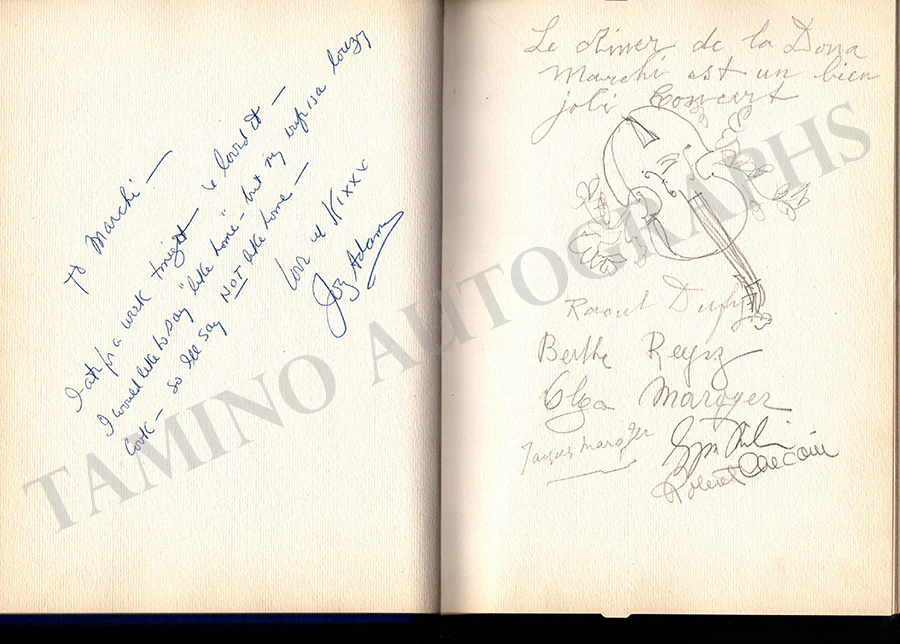 To Marchi —
I ate for a week tonight — & loved it —
I would like to say "like home" — but my wife is a lousy
cook — so I'll say NOT like home —
Love
Joey Adams
Le diner de la Dona
Marchi est un bien
joli Concert
Raoul Dufy
Berthe Reysz
Olga Maroger
Jacques Maroger
Robert
TAMINO AUTOGRAPHS